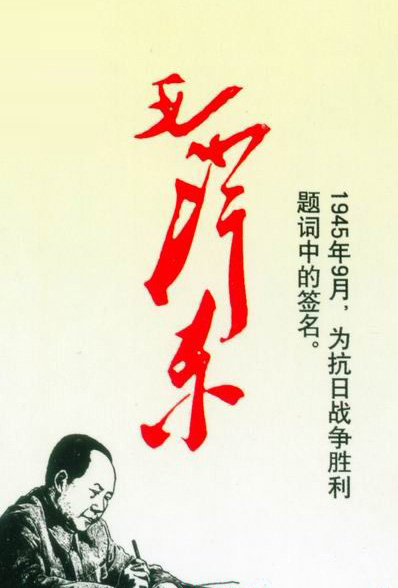 毛泽东
1945年9月，为抗日战争胜利
题词中的签名。